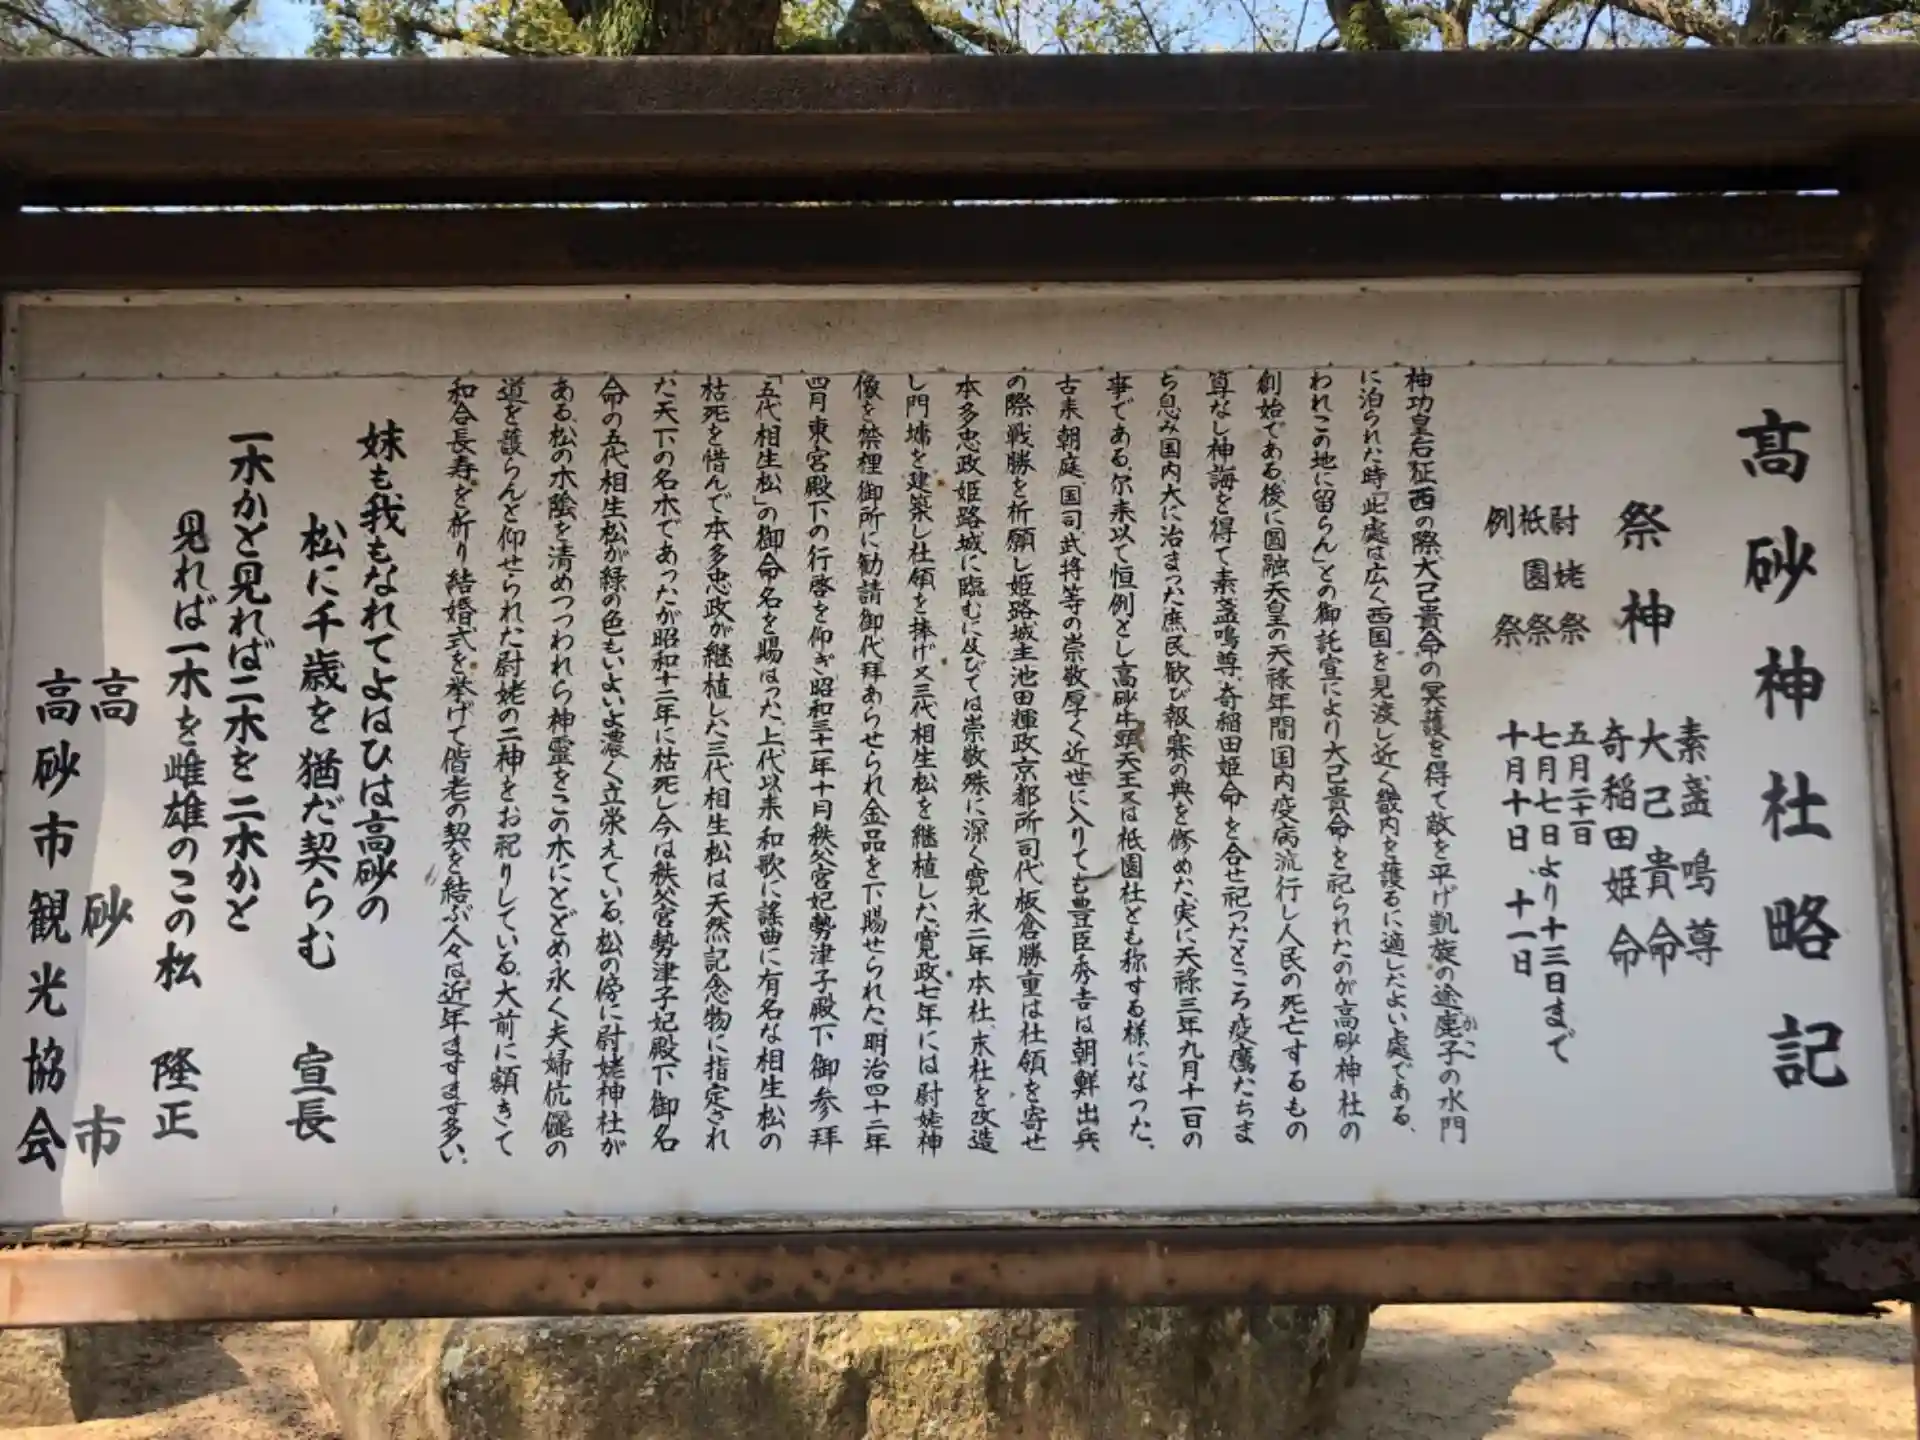 高砂神社略記
祭神
素盞鳴尊
大己貴命
奇稲田姫命
尉姥祭 五月二十一日
祇園祭 七月七日より十三日まで
例祭 十月十日 十一日
神功皇后征西の際、大己貴命の冥護を得て敵を平げ凱旋の途鹿子の水門
かこ
に泊られた時「此處は広く西国を見渡し近く畿内を護るに適したよい處である、
われこの地に留らん」との御託宣により大己貴命を祀られたのが高砂神社の
創始である、後に圓融天皇の天禄年間国内疫病流行し人民の死亡するもの
算なし神誨を得て素盞鳴尊、奇稲田姫命を合せ祀ったところ疫癘たちま
ち息み国内大に治まった庶民歓び報賽の典を修めた、実に天禄三年九月十一日の
事である、尓来以て恒例とし高砂牛頭天王又は祇園社とも称する様になった、
古来朝庭、国司武将等の崇敬厚く近世に入りても豊臣秀吉は朝鮮出兵
の際戦勝を祈願し姫路城主池田輝政京都所司代板倉勝重は社領を寄せ
本多忠政姫路城に臨むに及びては崇敬殊に深く寛永二年本社、末社を改造
し門墉を建築し社領を捧げ又三代相生松を継植した、寛政七年には尉姥神
像を禁裡御所に勧請御代拜あらせられ金品を下賜せられた、明治四十二年
四月東宮殿下の行啓を仰ぎ昭和三十一年十月秩父宮妃勢津子殿下御参拜
「五代相生松」の御命名を賜はった、上代以来和歌に謡曲に有名な相生松の
枯死を惜んで本多忠政が継植した三代相生松は天然記念物に指定され
た天下の名木であったが昭和十二年に枯死し今は秩父宮勢津子妃殿下御名
命の五代相生松が緑の色もいよいよ濃く立栄えている、松の傍に尉姥神社が
ある、松の木陰を清めつつわれら神霊をこの木にとどめ永く夫婦伉儷の
道を護らんと仰せられた尉姥の二神をお祀りしている、大前に額きて
和合長寿を祈り結婚式を挙げて偕老の契を結ぶ人々は近年ますます多い、
妹も我もなれてよはひは高砂の
松に千歳を猶だ契らむ 宣長
一木かと見れば二木を二木かと
見れば一木を雌雄のこの松 隆正
高砂市
高砂市観光協会